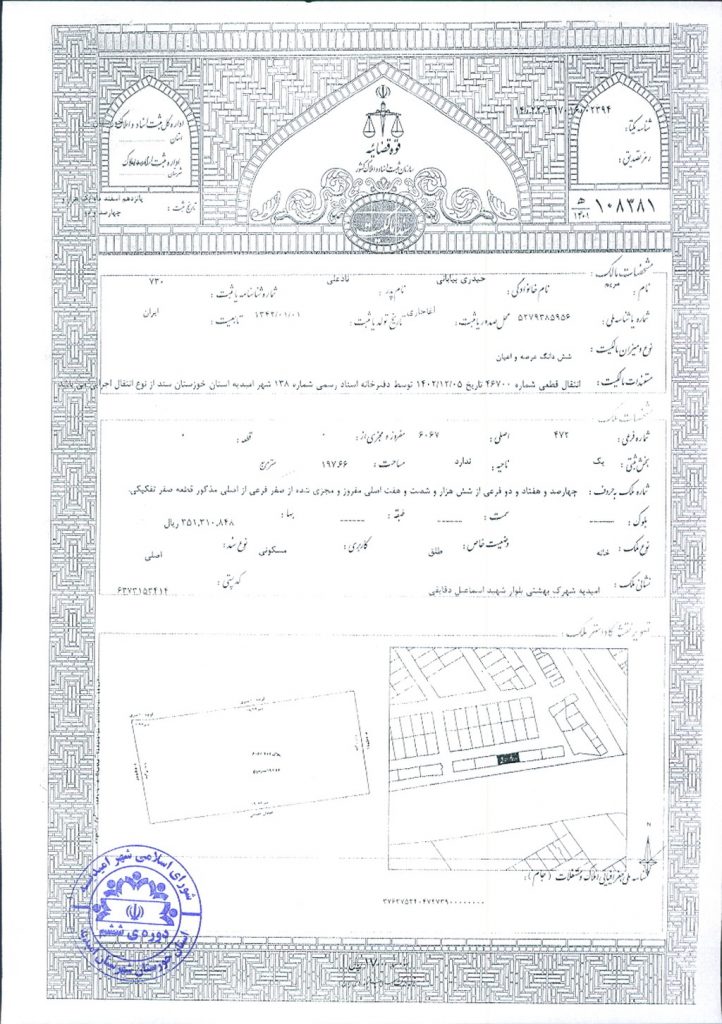 قوه قضائیه
سازمان ثبت اسناد و املاک کشور
اداره کل ثبت اسناد و املاک استان
اداره ثبت اسناد و املاک شهرستان
تاریخ ثبت : پانزدهم اسفند ماه یک هزار و چهارصد و دو
شناسه یکتا:
رمز تصدیق:
۱۰۸۳۸۱
۱۴۰۱
مشخصات مالک :
نام : نام خانوادگی : حیدری بیابانی نام پدر : نادعلی شماره شناسنامه یا ثبت : ۷۳۰
شماره یا شناسه ملی : ۵۲۷۹۳۸۵۹۵۶ محل صدور یا ثبت : آغاجاری تاریخ تولد یا ثبت : ۱۳۴۲/۰۱/۰۱ تابعیت : ایران
نوع و میزان مالکیت : شش دانگ عرصه و اعیان
مستندات مالکیت : انتقال قطعی شماره ۴۶۷۰۰ تاریخ ۱۴۰۲/۱۲/۰۵ توسط دفترخانه اسناد رسمی شماره ۱۳۸ شهر امیدیه استان خوزستان سند از نوع انتقال اجرایی می باشد
مشخصات ملک :
شماره فرعی : ۴۷۲ اصلی : ۶۰۶۷ مفروز و مجزی از : ۰ قطعه : ۰
بخش ثبتی : یک ناحیه : ندارد مساحت : ۱۹۷.۶۶ متر مربع
شماره ملک به حروف : چهارصد و هفتاد و دو فرعی از شش هزار و شصت و هفت اصلی مفروز و مجزی شده از صفر فرعی از اصلی مذکور قطعه صفر تفکیکی.
بلوک : ------ سمت : ------ طبقه : ------ بها : ۳۵۱,۳۱۰,۸۴۸ ریال
نوع ملک : خانه وضعیت خاص : طلق کاربری : مسکونی نوع سند : اصلی
نشانی ملک : امیدیه شهرک بهشتی بلوار شهید اسماعیل دقایقی کد پستی : ۶۳۷۳۱۵۳۴۱۴
تصویر نقشه کاداستر ملک :
N
شناسه ملی جغرافیایی املاک و مستغلات (جام) :
شورای اسلامی شهر امیدیه
دوره ی ششم
استان خوزستان شهرستان امیدیه